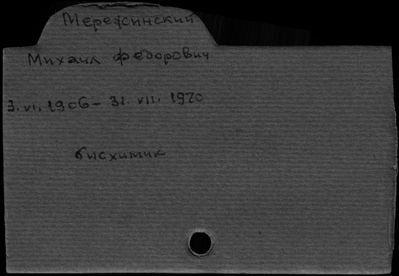 Мережинский
Михаил Федорович
3.VI.1906 – 31.VII.1970
биохимик